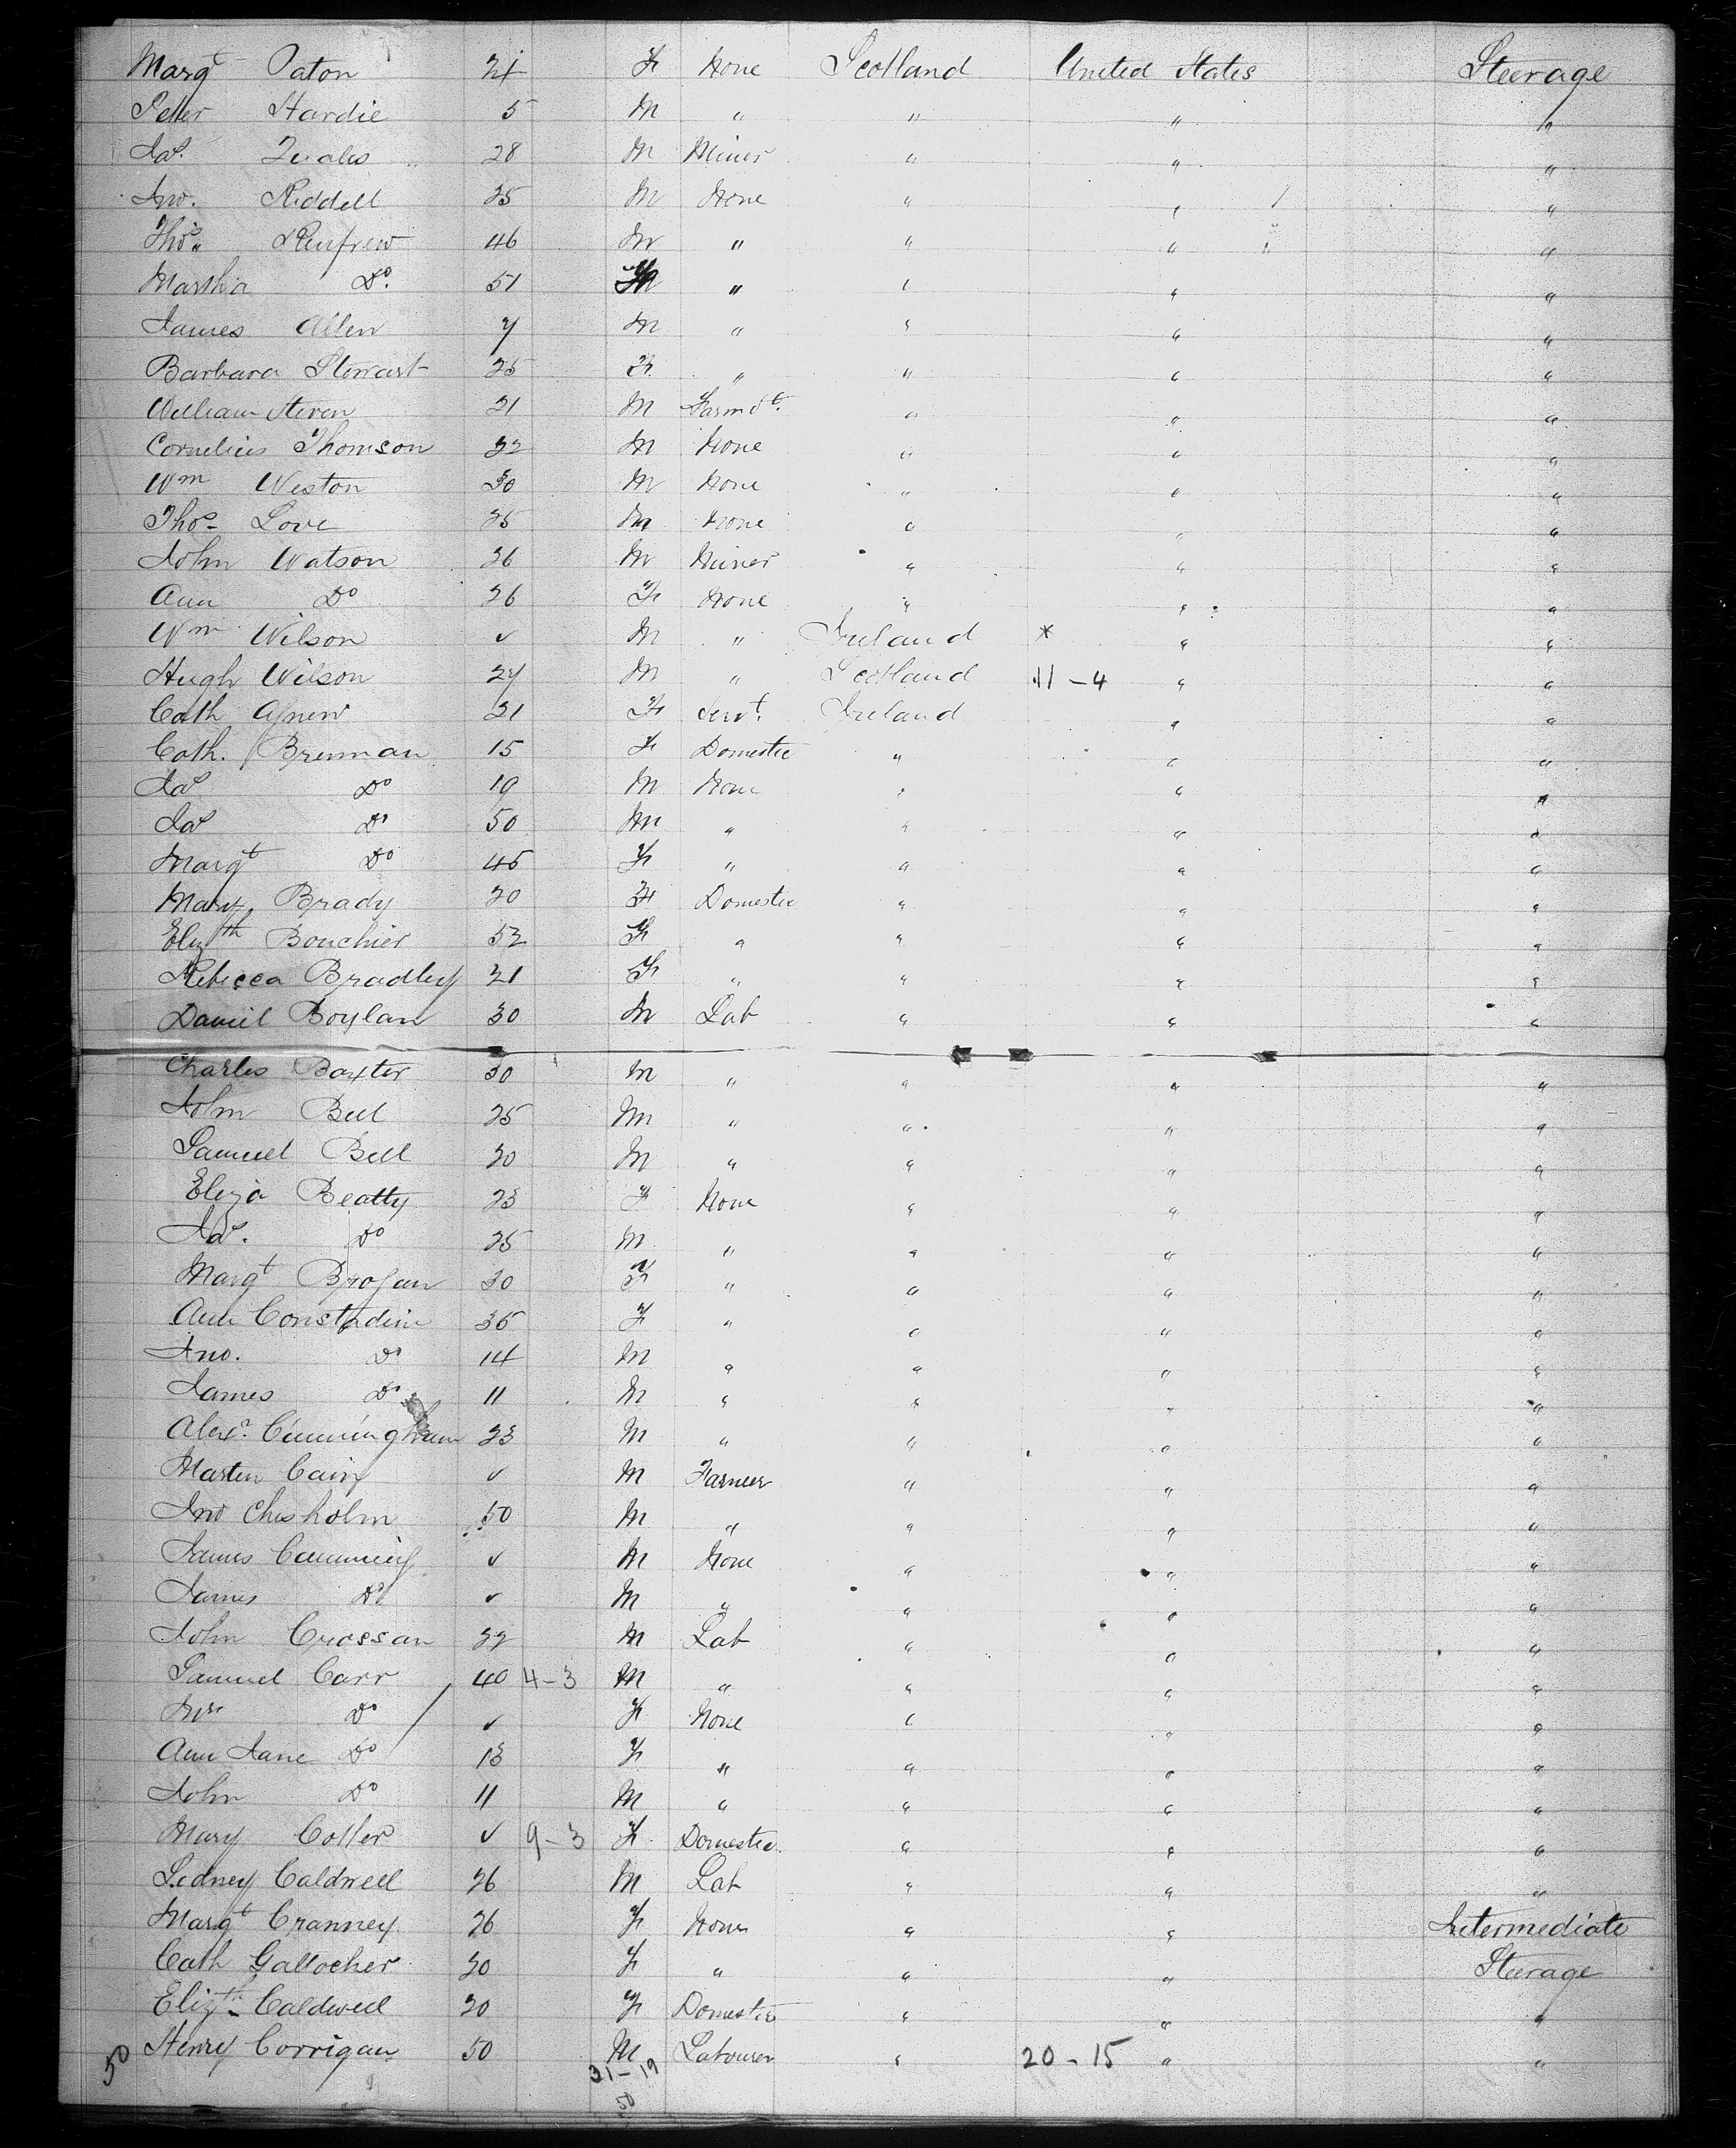 Margt Paton 24 F None Scotland United States Steerage
Peter Hardie 5 M " " " "
Jas. 28 M Miner " " "
Jno. Riddell 25 M None " " "
Thos. Renfrew 46 M " " " "
Martha Do. 51 F " " " "
James Allen 7 M " " " "
Barbara Stewart 25 F " " " "
William Steven 21 M " " "
Cornelius Thomson 22 M None " " "
Wm Weston 30 M None " " "
Thos. Love 25 M None " " "
John Watson 26 M Miner " " "
Ann Do 26 F None " " "
Wm Wilson ✓ M " Ireland * " "
Hugh Wilson 27 M " Scotland 11-4 " "
Cath Agnew 21 F Servt. Ireland " "
Cath. Brennan 15 F Domestic " " "
Jas Do 19 M None " " "
Jas Do 50 M " " " "
Margt Do 45 F " " " "
Mary Brady 20 F Domestic " " "
Elizth Bouchier 52 F " " " "
Rebecca Bradley 21 F " " " "
Daniel Boylan 30 M Lab " " "
Charles Baxter 30 M " " " "
John Bell 25 M " " " "
Samuel Bell 20 M " " " "
Eliza Beatty 23 F None " " "
Jas. Do 25 M " " " "
Margt Brogan 30 F " " " "
Ann Constadine 35 F " " " "
Jno. Do 14 M " " " "
James Do 11 M " " " "
Alexr. Cunningham 23 M " " " "
Martin Cain ✓ M Farmer " " "
Jno Chisholm 50 M " " " "
James Cumming ✓ M None " " "
James Do ✓ M " " " "
John Crossan 22 M Lab " " "
Samuel Carr 40 4-3 M " " " "
Mrs Do ✓ F None " " "
Ann Jane Do 13 F " " " "
John Do 11 M " " " "
Mary Coller ✓ 9-3 F Domestic " " "
Sidney Caldwell 26 M Lab " " "
Margt Cranney 26 F None " " Intermediate
Cath Gallocher 20 F " " " Steerage
Elizth Caldwell 20 F Domestic " " "
50 Henry Corrigan 50 M Labourer " 20-15 " "
31-19
50